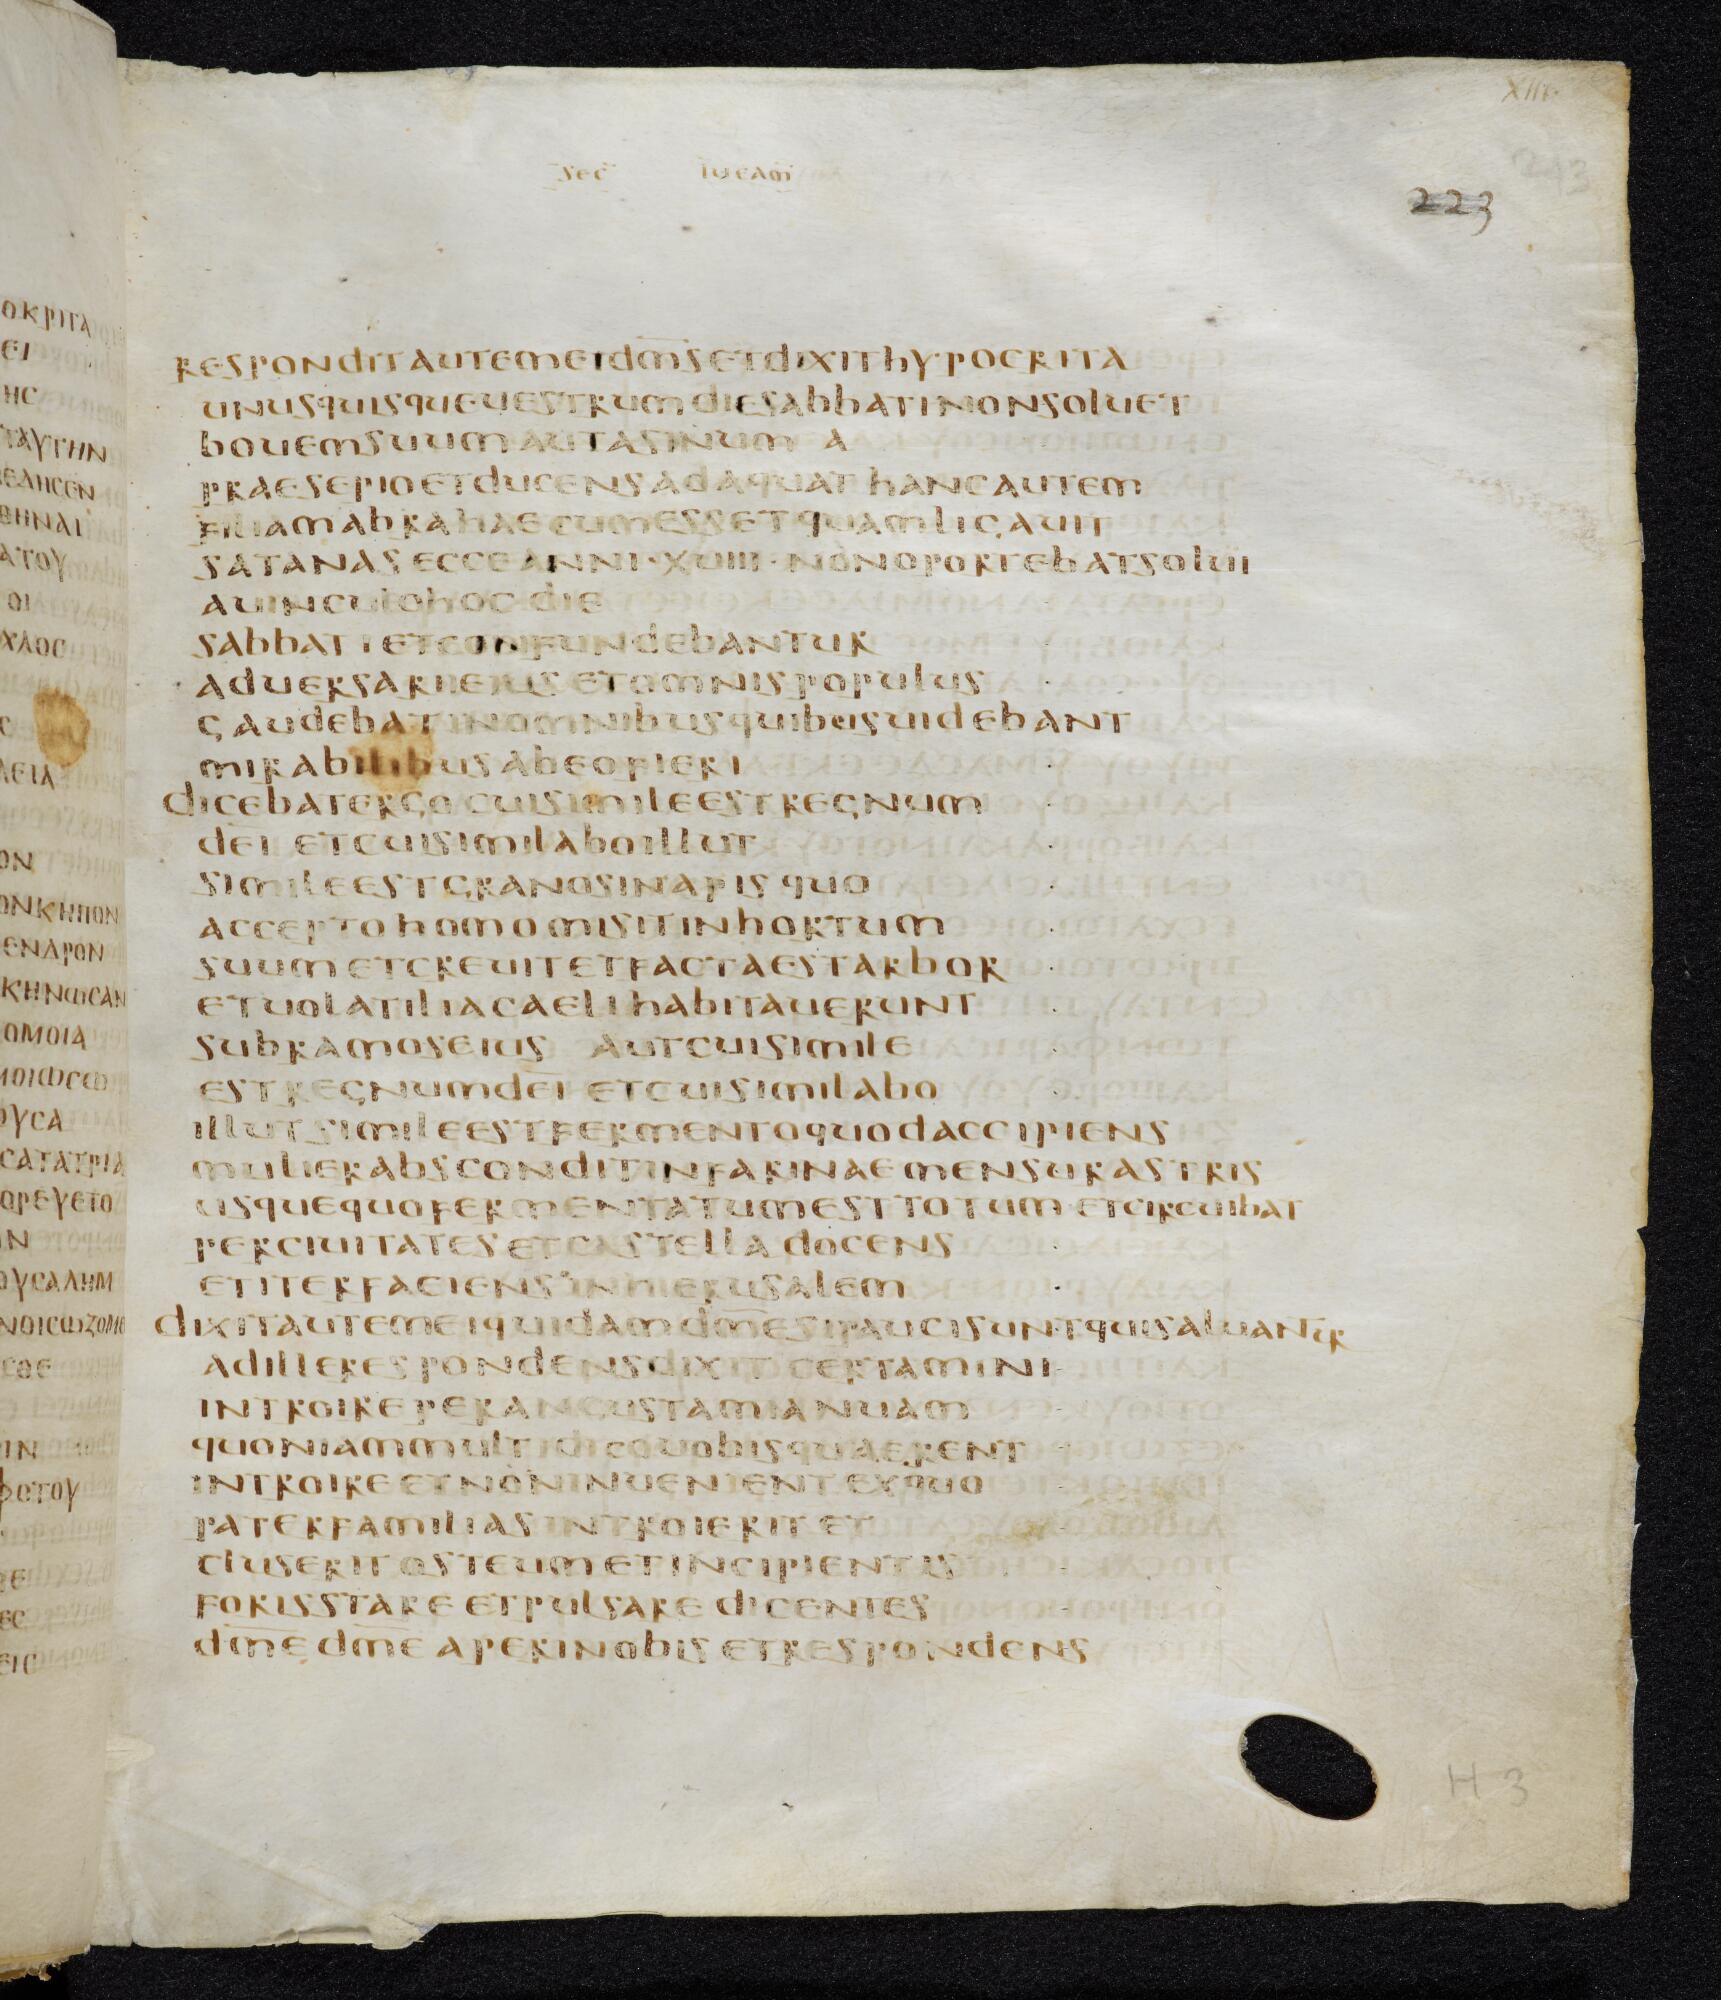 XIII·
243
sec lucam
223
respondit autem ei dm̅s et dixit hypocrita
unusquisque uestrum die sabbati non soluet
bouem suum aut asinum a
praesepio et ducens adaquat hanc autem
filiam abrahae cum esset quam ligauit
satanas ecce anni · xuiii · non oportebat solui
a uinculo hoc die
sabbati et confundebantur
aduersarii eius et omnis populus
gaudebat in omnibus quibus uidebant
mirabilibus ab eo fieri
dicebat ergo cui simile est regnum
dei et cui similabo illut
simile est grano sinapis quo
accepto homo misit in hortum
suum et creuit et facta est arbor
et uolatilia caeli habitauerunt
sub ramos eius aut cui simile
est regnum dei et cui similabo
illut simile est fermento quod accipiens
mulier abscondit in farinae mensuras tris
usquequo fermentatum est totum et circuibat
per ciuitates et castella docens
et iter faciens in hierusalem
dixit autem ei quidam dm̅e si pauci sunt qui saluantur
ad ille respondens dixit certamini
introire per angustam ianuam
quoniam multi dico uobis quaerent
introire et non inuenient ex quo
pater familias introierit et
cluserit osteum et incipientis
foris stare et pulsare dicentes
dm̅e dm̅e aperi nobis et respondens
H 3